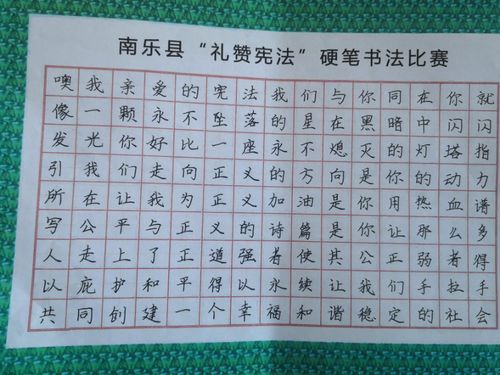 南乐县“礼赞宪法”硬笔书法比赛
噢我亲爱的宪法我们与你同在你就
像一颗永不坠落的星在黑暗中闪闪
发光你好比一座永不熄灭的灯塔指
引我们走向正义的方向是你的动力
所在让我为正义加油是你用热血谱
写公平与正义的诗篇是你让那么多
人走上了正道强者使其公正弱者得
以庇护和平得以永续让我们手拉手
共同创建一个幸福和谐稳定的社会